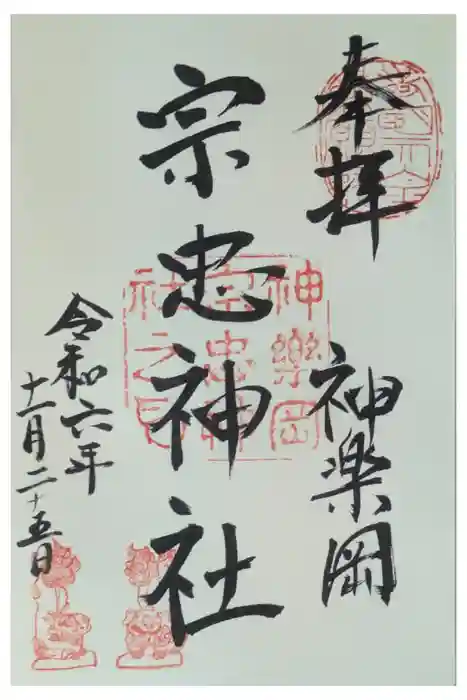 奉拝
神楽岡
宗忠神社
令和六年
十一月二十五日
神樂岡
宗忠神
社之印